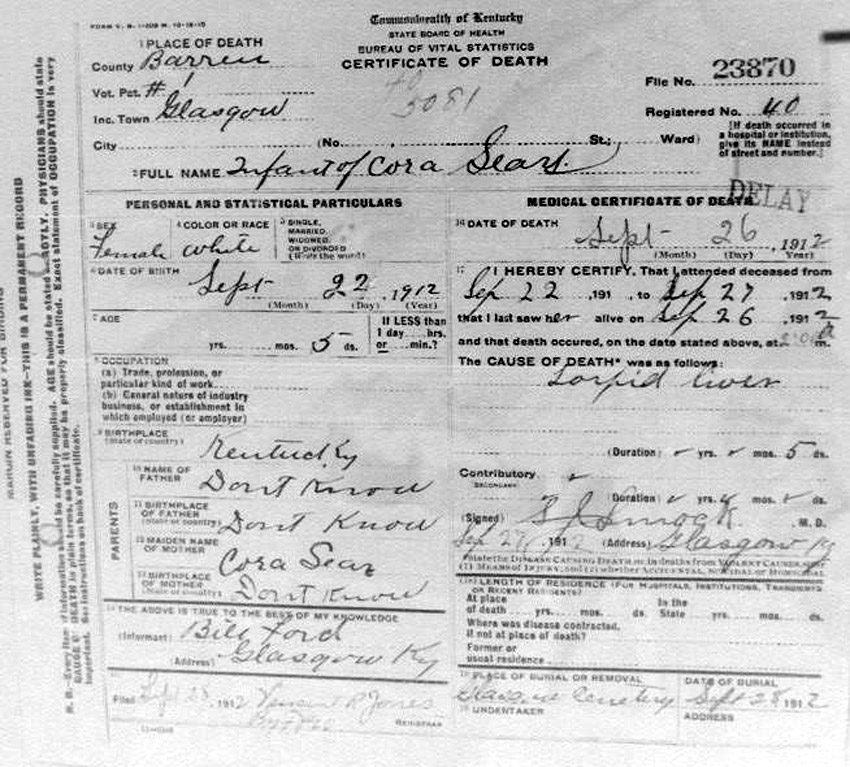 FORM V. S. 1-
Commonwealth of Kentucky
STATE BOARD OF HEALTH
BUREAU OF VITAL STATISTICS
CERTIFICATE OF DEATH
1 PLACE OF DEATH
County Barren
Vot. Pct. # 1
Inc. Town Glasgow
City (No. St.; Ward)
5081
File No. 23870
Registered No. 40
[If death occurred in
a hospital or institution,
give its NAME instead
of street and number.]
2 FULL NAME Infant of Cora Sears
PERSONAL AND STATISTICAL PARTICULARS
3 SEX Female
4 COLOR OR RACE white
5 SINGLE,
MARRIED,
WIDOWED,
OR DIVORCED
(Write the word)
6 DATE OF BIRTH
Sept 22, 1912
(Month) (Day) (Year)
7 AGE
yrs. mos. 5 ds.
If LESS than
1 day....hrs.
or....min.?
8 OCCUPATION
(a) Trade, profession, or
particular kind of work
(b) General nature of industry
business, or establishment in
which employed (or employer)
9 BIRTHPLACE
(State or country) Kentucky
PARENTS
10 NAME OF
FATHER Dont Know
11 BIRTHPLACE
OF FATHER
(State or country) Dont Know
12 MAIDEN NAME
OF MOTHER Cora Sears
13 BIRTHPLACE
OF MOTHER
(State or country) Dont Know
14 THE ABOVE IS TRUE TO THE BEST OF MY KNOWLEDGE
(Informant) Bill Ford
(Address) Glasgow Ky
15
Filed Sept 28, 1912 R Jones
REGISTRAR
MEDICAL CERTIFICATE OF DEATH
DELAY
16 DATE OF DEATH
Sept 26, 1912
(Month) (Day) Year)
17 I HEREBY CERTIFY, That I attended deceased from
Sep 22, 191 , to Sep 27, 1912
that I last saw her alive on Sep 26, 1912
and that death occured, on the date stated above, at 2 a m.
The CAUSE OF DEATH* was as follows:
Torpid liver
(Duration) yrs. mos. 5 ds.
Contributory
SECONDARY
(Duration) yrs. mos. ds.
(Signed) Smock M. D.
Sep 27, 1912 (Address) Glasgow Ky
*State the DISEASE CAUSING DEATH or, in deaths from VIOLENT CAUSES, state
(1) MEANS OF INJURY, and (2) whether ACCIDENTAL, SUICIDAL or HOMICIDAL
18 LENGTH OF RESIDENCE (FOR HOSPITALS, INSTITUTIONS, TRANSIENTS
OR RECENT RESIDENTS)
At place In the
of death yrs. mos. ds. State yrs. mos. ds.
Where was disease contracted,
if not at place of death?
Former or
usual residence
19 PLACE OF BURIAL OR REMOVAL
Glasgow Cemetery
DATE OF BURIAL
Sept 28 1912
20 UNDERTAKER
ADDRESS
MARGIN RESERVED FOR BINDING
WRITE PLAINLY, WITH UNFADING INK—THIS IS A PERMANENT RECORD
N. B.—Every item of information should be carefully supplied. AGE should be stated EXACTLY. PHYSICIANS should state
CAUSE OF DEATH in plain terms, so that it may be properly classified. Exact statement of OCCUPATION is very
important. See instructions on back of certificate.